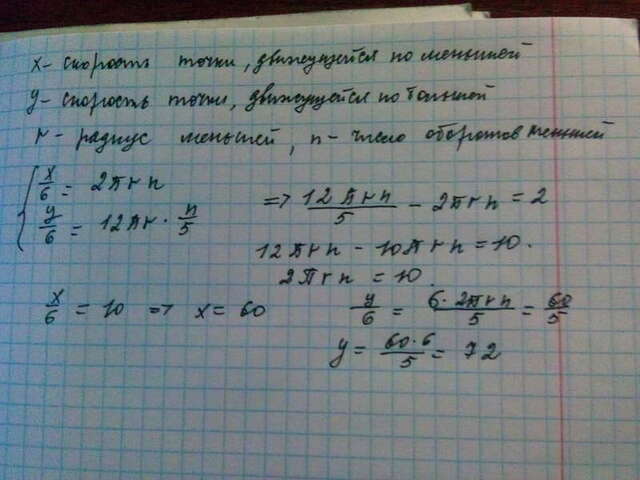 x - скорость точки, движущейся по меньшей
y - скорость точки, движущейся по большой
r - радиус меньшей, n - число оборотов меньшей
x/6 = 2πrn
y/6 = 12πr · n/5
=> 12πrn/5 - 2πrn = 2
12πrn - 10πrn = 10.
2πrn = 10.
x/6 = 10 => x = 60
y/6 = 6·2πrn/5 = 60/5
y = 60·6/5 = 72